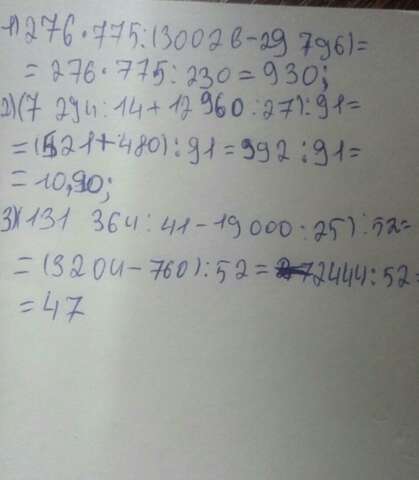 1) 276·775:(30026-29 796)=
= 276·775:230=930;
2)(7 294:14+12 960:27):91=
=(521+480):91=992:91=
=10,90;
3)(131 364:41-19000:25):52=
=(3204-760):52=2444:52=
=47